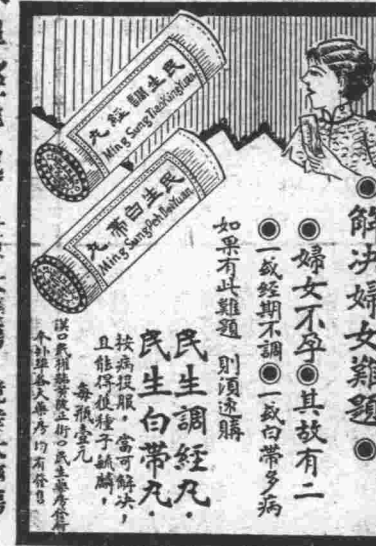 ◉解決婦女難題◉
◉婦女不孕◉其故有二
◉一或經期不調◉一或白帶多病
如果有此難題 則須速購
民生調經丸．
民生白帶丸．
按病投服，當可解決，
且能得獲種子毓麟，
每瓶壹元
漢口民權路萬欽正街口民生藥房發行
本外埠各大藥房均有發售
民生調經丸
Ming Sung Tiao King Yuan
民生白帶丸
Ming Sung Peh Tai Yuan